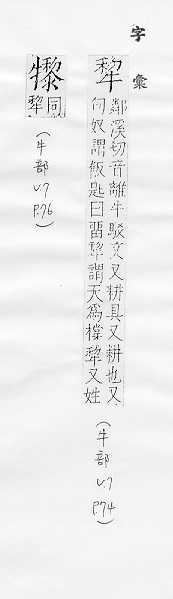 字彙
犂
鄰溪切音離牛駁文又耕具又耕也又
匈奴謂飯匙曰留犂謂天爲橕犂又姓
(牛部 v.7 P.74)
同犂
(牛部 v.7 P.76)